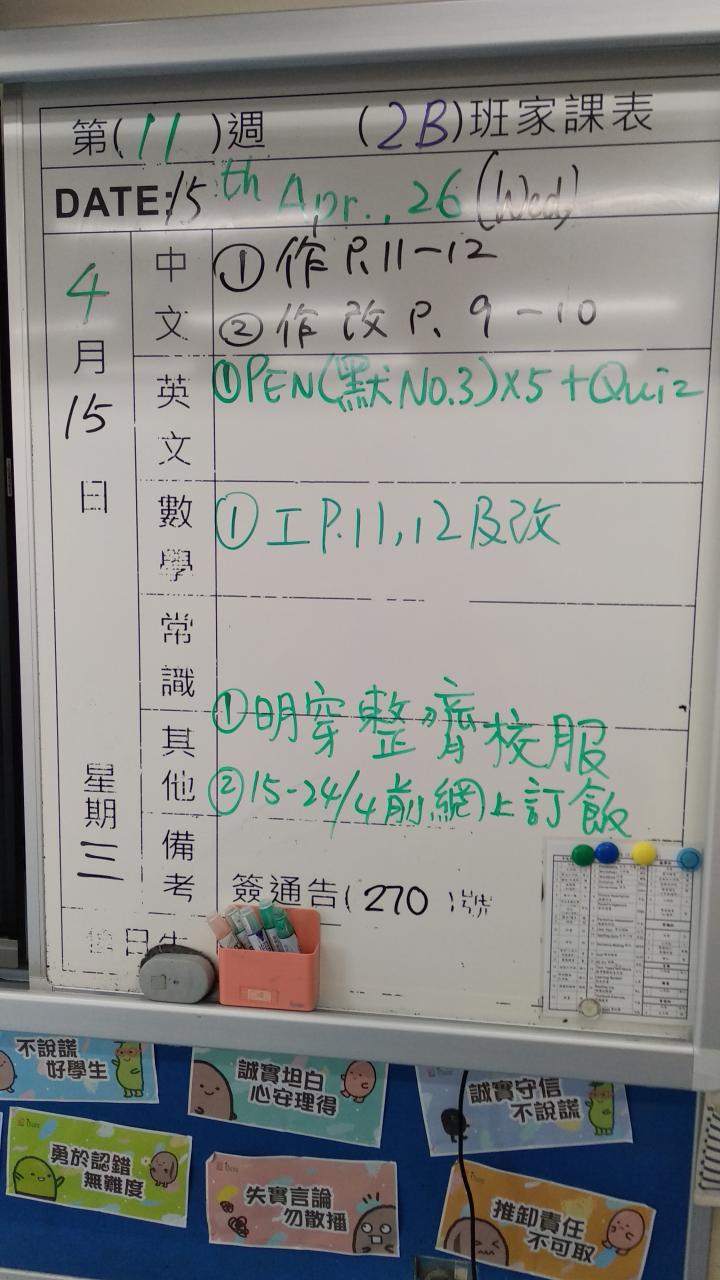 第(11)週 (2B)班家課表
DATE: 15th Apr., 26 (Wed)
4月15日 星期三
中文
①作P.11-12
②作改P.9-10
英文
①PEN(默No.3)x5+Quiz
數學
①工P.11,12及改
常識
其他
①明穿整齊校服
②15-24/4前網上訂飯
備考
簽通告(270)號
不說謊
好學生
誠實坦白
心安理得
誠實守信
不說謊
勇於認錯
無難度
失實言論
勿散播
推卸責任
不可取